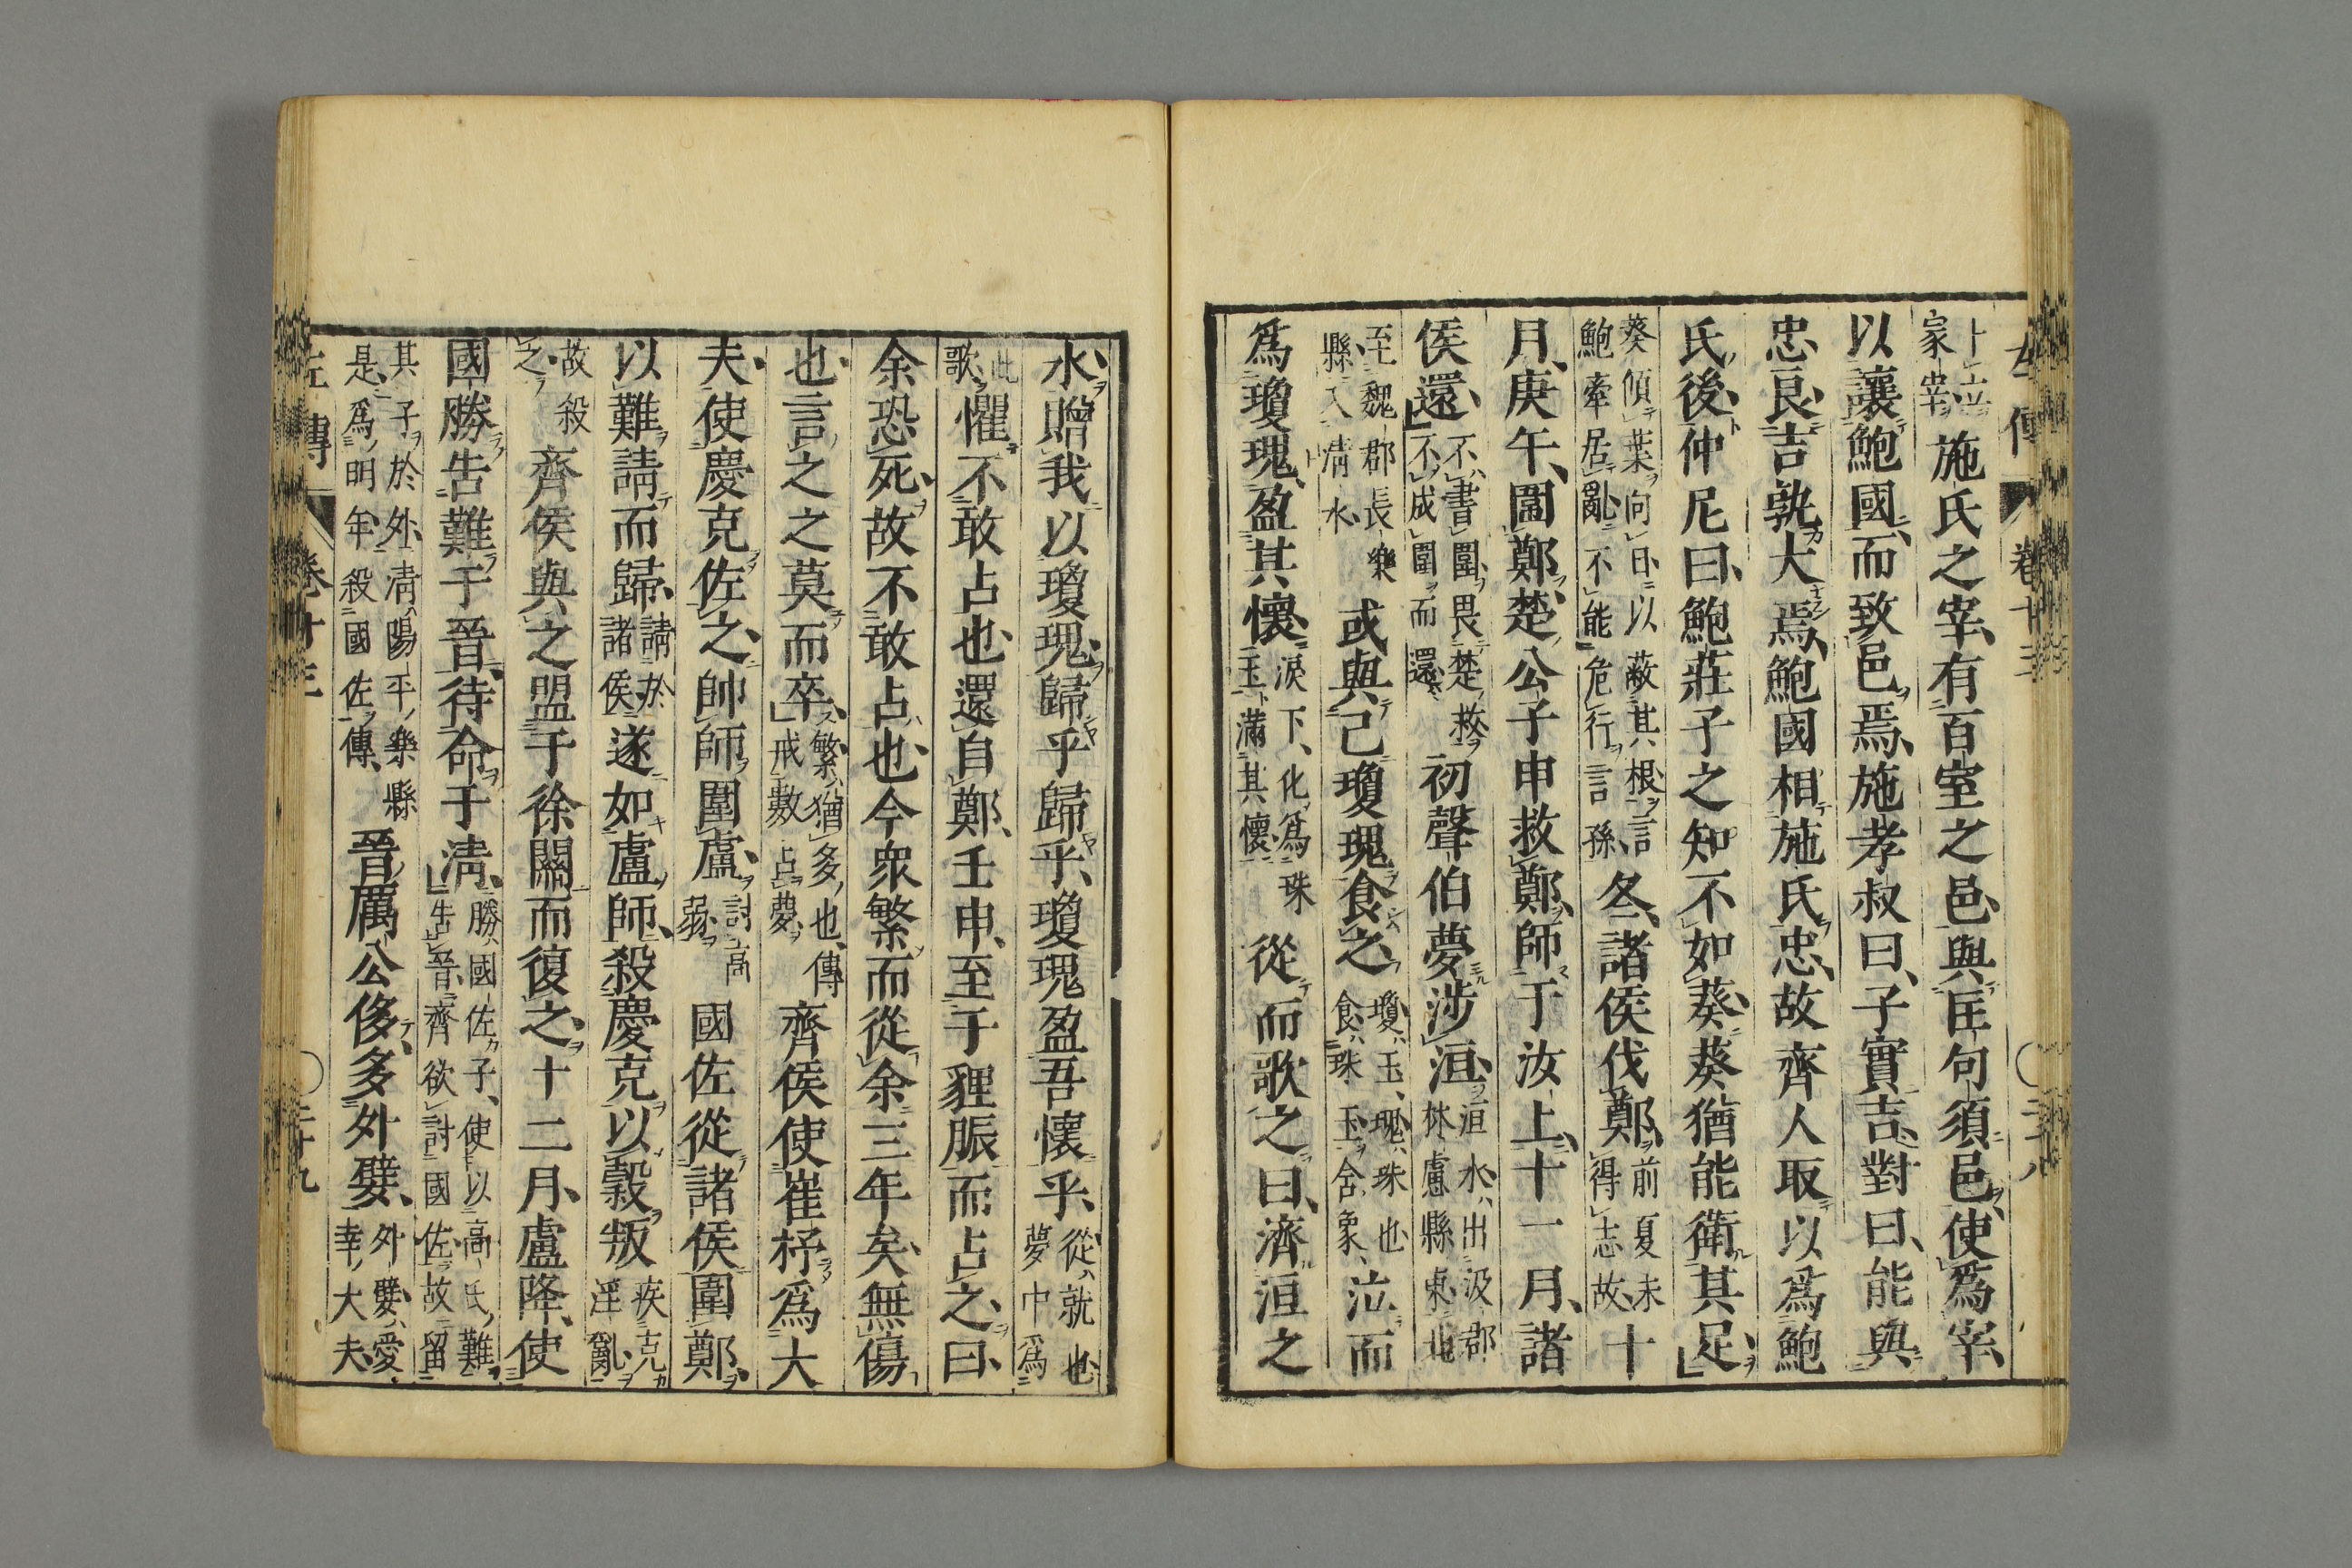 左傳 卷十三 二十八
卜立家宰施氏之宰有百室之邑與匡句須邑使爲宰
以讓鮑國而致邑焉施孝叔曰子實吉對曰能與
忠良吉孰大焉鮑國相施氏忠故齊人取以爲鮑
氏後仲尼曰鮑莊子之知不如葵葵猶能衛其足
葵傾葉向日以蔽其根言鮑牽居亂不能危行言孫冬諸侯伐鄭前夏未得志故十
月庚午圍鄭楚公子申救鄭師于汝上十一月諸
侯還不書圍畏楚救不成圍而還初聲伯夢涉洹洹水出汲郡林慮縣東北
至魏郡長樂縣入淸水或與己瓊瑰食之瓊玉瑰珠也食珠玉含象泣而
爲瓊瑰盈其懷淚下化爲珠玉滿其懷從而歌之曰濟洹之
水贈我以瓊瑰歸乎歸乎瓊瑰盈吾懷乎從就也夢中爲
此歌懼不敢占也還自鄭壬申至于貍脤而占之曰
余恐死故不敢占也今衆繁而從余三年矣無傷
也言之之莫而卒繁猶多也傳戒數占夢齊侯使崔杼爲大
夫使慶克佐之帥師圍盧討高弱國佐從諸侯圍鄭
以難請而歸請於諸侯遂如盧師殺慶克以穀叛疾克淫亂
故殺之齊侯與之盟于徐關而復之十二月盧降使
國勝告難于晉待命于淸勝國佐子使以高氏難告晉齊欲討國佐故留
其子於外淸陽平樂縣是爲明年殺國佐傳晉厲公侈多外嬖外嬖愛幸大夫
左傳 卷十三 二十九